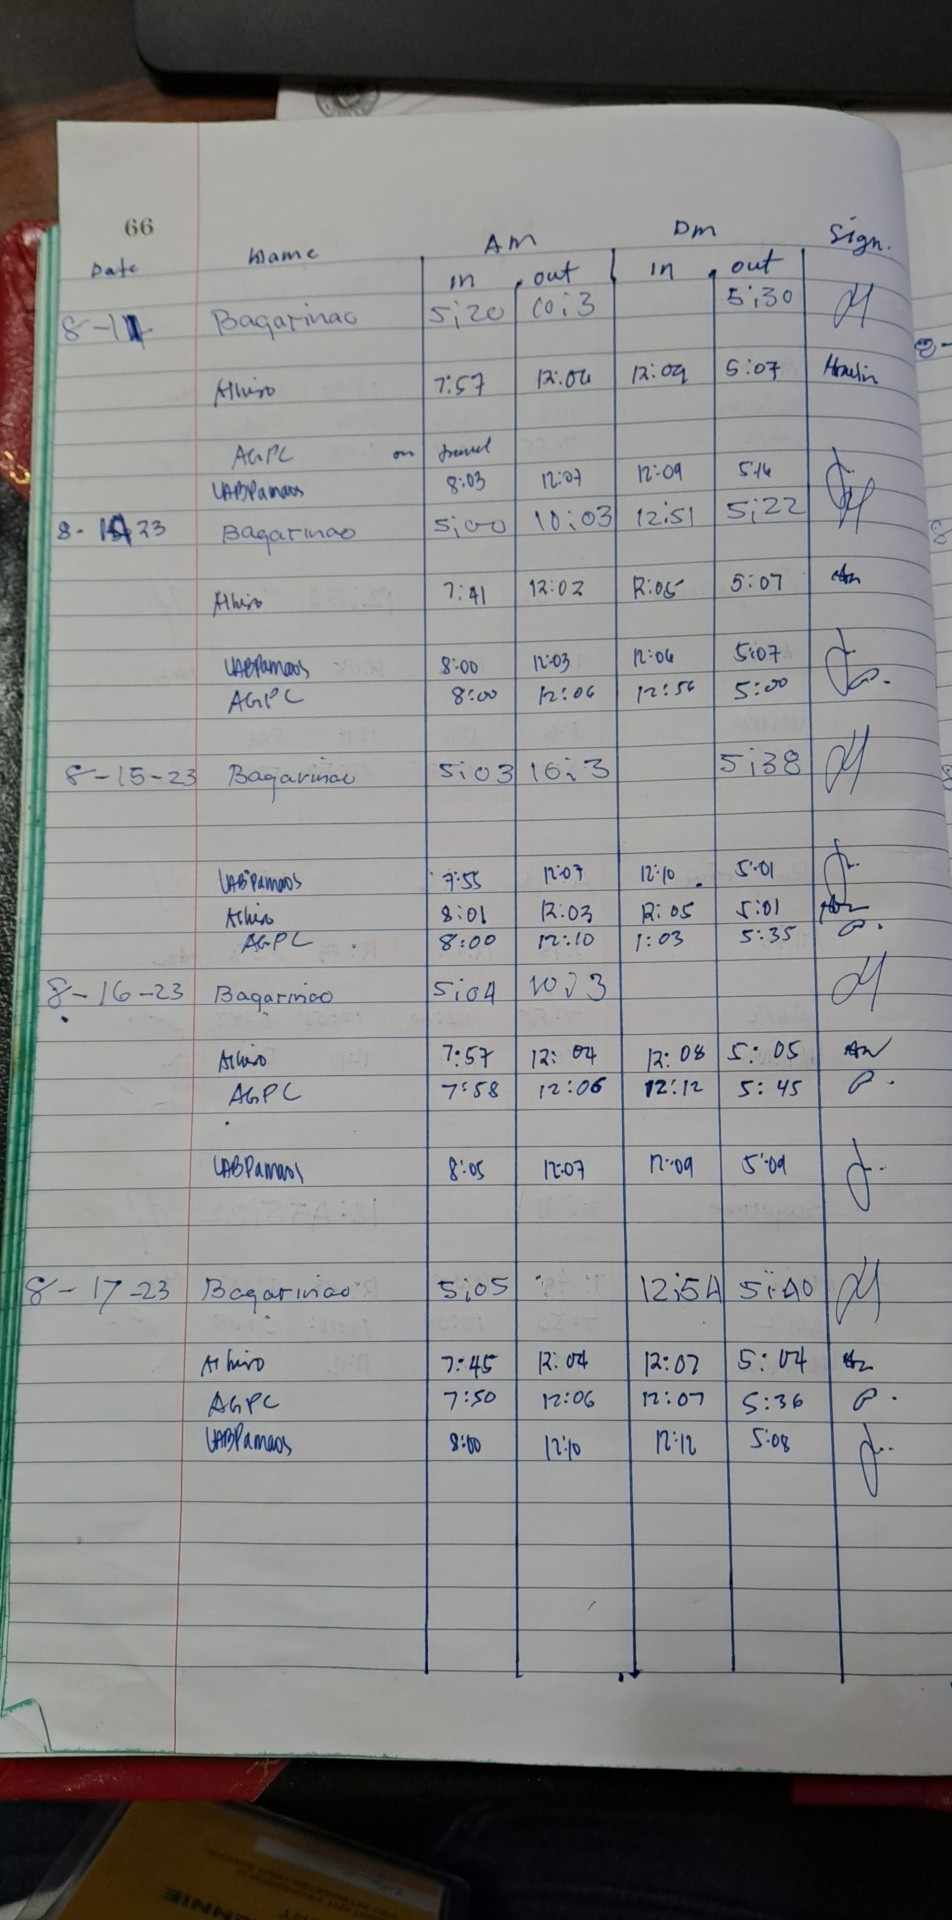 66
AM Pm Sign.
Date Name in out in out
8-11 Bagarinao 5:20 10:3 5:30
Alhiro 7:57 12:04 12:09 5:07
AGPC on travel
LABPamaos 8:03 12:07 12:09 5:16
8-14 23 Bagarinao 5:00 10:03 12:51 5:22
Alhiro 7:41 12:02 12:05 5:07
LABPamaos 8:00 12:03 12:06 5:07
AGPC 8:00 12:06 12:56 5:00
8-15-23 Bagarinao 5:03 10:3 5:38
LABPamaos 7:55 12:07 12:10 5:01
Alhiro 8:01 12:03 12:05 5:01
AGPC 8:00 12:10 1:03 5:35
8-16-23 Bagarinao 5:04 10:3
Alhiro 7:57 12:04 12:08 5:05
AGPC 7:58 12:06 12:12 5:45
LABPamaos 8:05 12:07 12:09 5:09
8-17-23 Bagarinao 5:05 12:54 5:40
Alhiro 7:45 12:04 12:07 5:04
AGPC 7:50 12:06 12:07 5:36
LABPamaos 8:00 12:10 12:12 5:08